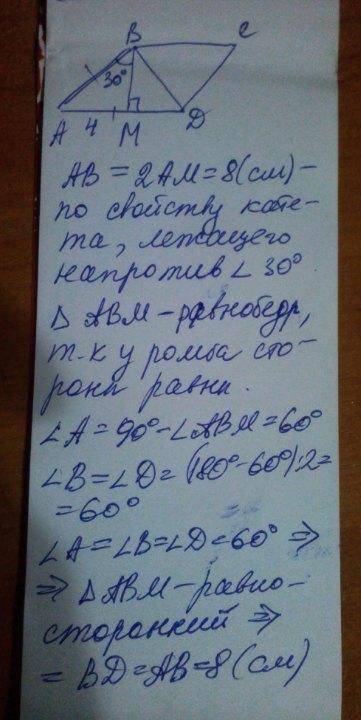 B C
30°
A 4 M D
AB = 2AM = 8(см) –
по свойству кате-
та, лежащего
напротив ∠ 30°
Δ ABM – равнобедр,
т.к у ромба сто-
роны равны.
∠A = 90° – ∠ABM = 60°
∠B = ∠D = (180° – 60°):2 =
= 60°
∠A = ∠B = ∠D = 60° ⇒
⇒ Δ ABM – равно-
сторонний ⇒
= BD = AB = 8 (см)